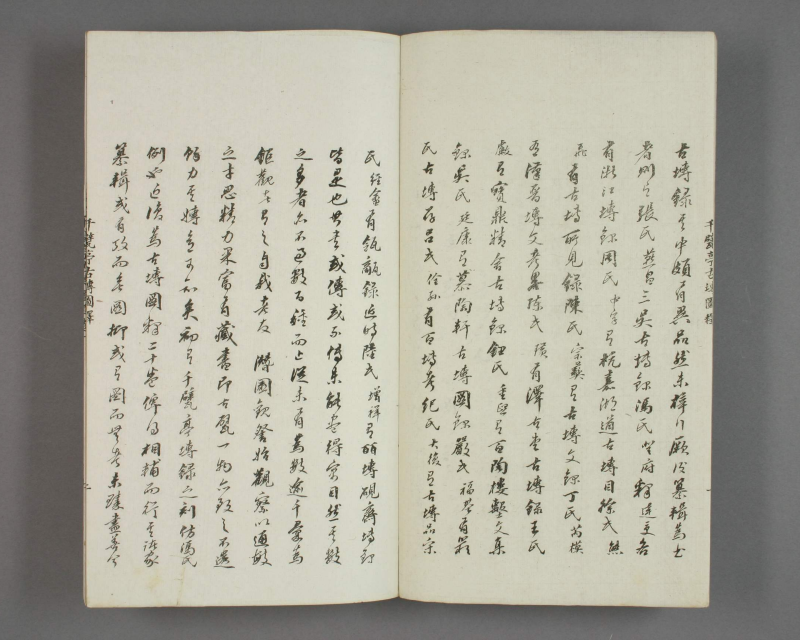 古塼錄其中頗有異品然未梓行厥後纂輯爲書
者則有張氏燕昌三吳古塼錄馮氏登府釋逵
有浙江塼錄周氏中孚有杭嘉湖道古塼目徐氏熊
飛有古塼所見錄陳氏宗彝有古塼文錄丁氏芮模
有漢晉塼文考畧陳氏璜有澤古堂古塼錄王氏
有寶鼎精舍古塼錄鈕氏重熙有百陶樓甎文集
錄吳氏廷康有慕陶軒古塼圖錄嚴氏福基有嚴
氏古塼存呂氏佺孫有百塼考紀氏大復有古塼品宋
氏經畬有瓴甋錄近時陸氏增祥有皕塼硯齋塼
皆是也其書或傳或不傳未能盡得寓目然其數
之多者亦不過數百種而止從未有爲數逾千彙爲
鉅觀者有之自我老友潛園觀察始觀察以通敏
之才思精力果富有藏書即古甓一物亦致之不遺
餘力其塼多可知矣初有千甓亭塼錄之刻仿馮氏
例也近復爲古塼圖釋二十卷俾得相輔而行其諸家
纂輯或有攷而無圖抑或有圖而無考未臻盡善今
千甓亭古塼圖釋
千甓亭古塼圖釋